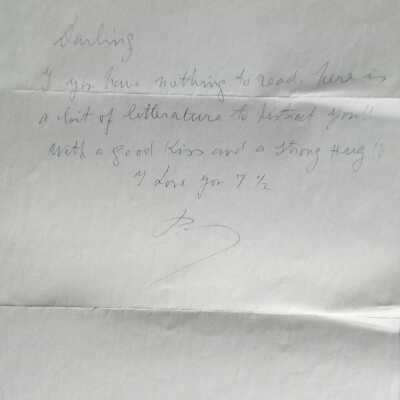 Darling
If you have nothing to read, here is
a bit of litterature to distract you!!
With a good Kiss and a strong Hug!!
I Love you 7 ½
P.